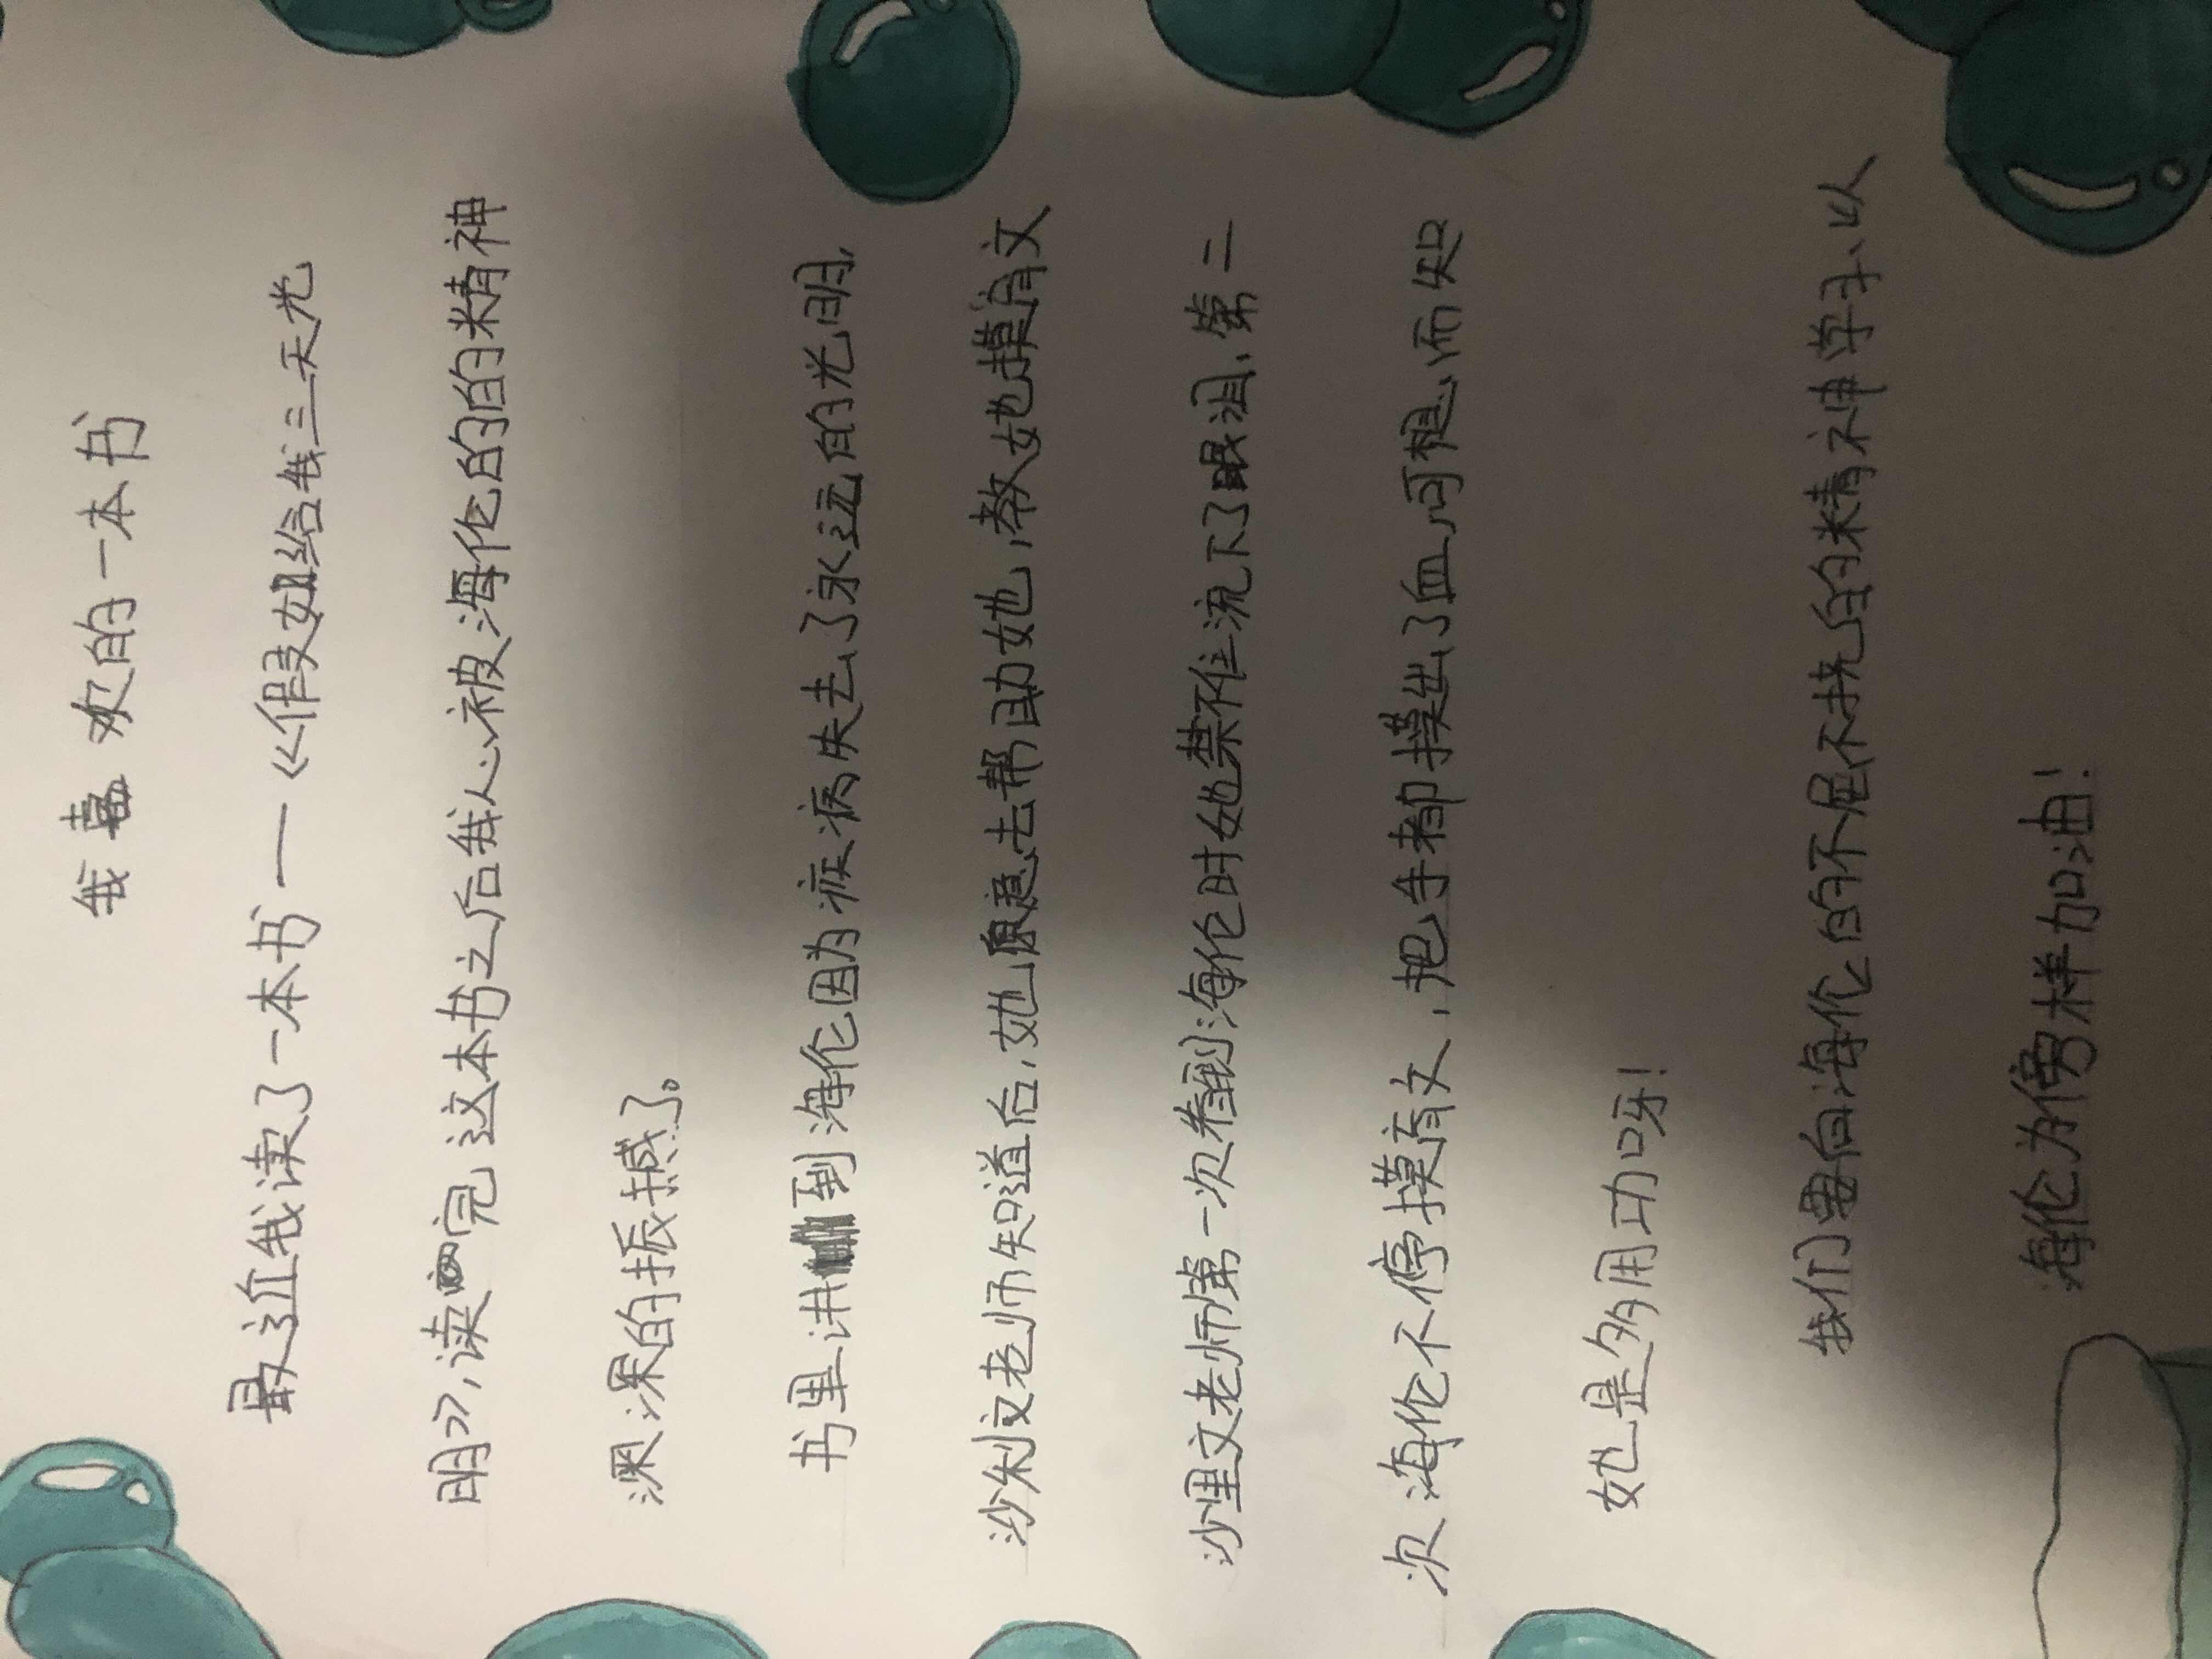 我喜欢的一本书
最近我读了一本书——《假如给我三天光
明》,读完这本书之后我心被海伦的的精神
深深的振撼了。
书里讲到海伦因为疾病失去了永远的光明,
沙利文老师知道后,她愿意去帮助她,教她摸盲文
沙里文老师第一次看到海伦时她禁不住流下了眼泪、第二
次海伦不停摸盲文,把手都摸出了血,可想而知
她是多用功呀!
我们要向海伦的不屈不挠的精神学习、以
海伦为傍样加油!